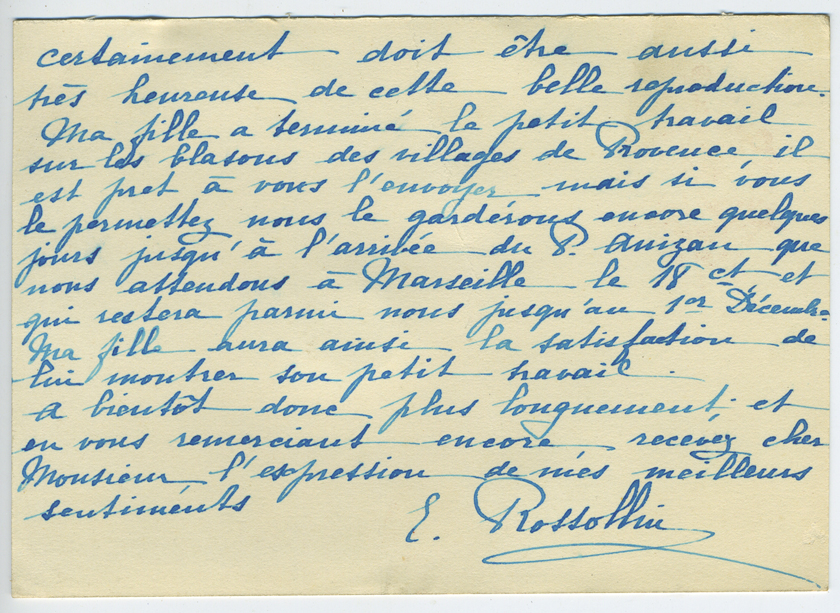 certainement doit être aussi
très heureuse de cette belle reproduction.
Ma fille a terminé le petit travail
sur les blasons des villages de Provence il
est prêt à vous l'envoyer mais si vous
le permettez nous le garderons encore quelques
jours jusqu'à l'arrivée du P. Anizan que
nous attendons à Marseille le 18 ct et
qui restera parmi nous jusqu'au 1er Décembre.
Ma fille aura ainsi la satisfaction de
lui montrer son petit travail.
A bientôt donc plus longuement, et
en vous remerciant encore recevez cher
Monsieur l'expression de mes meilleurs
sentiments
E. Rossollin